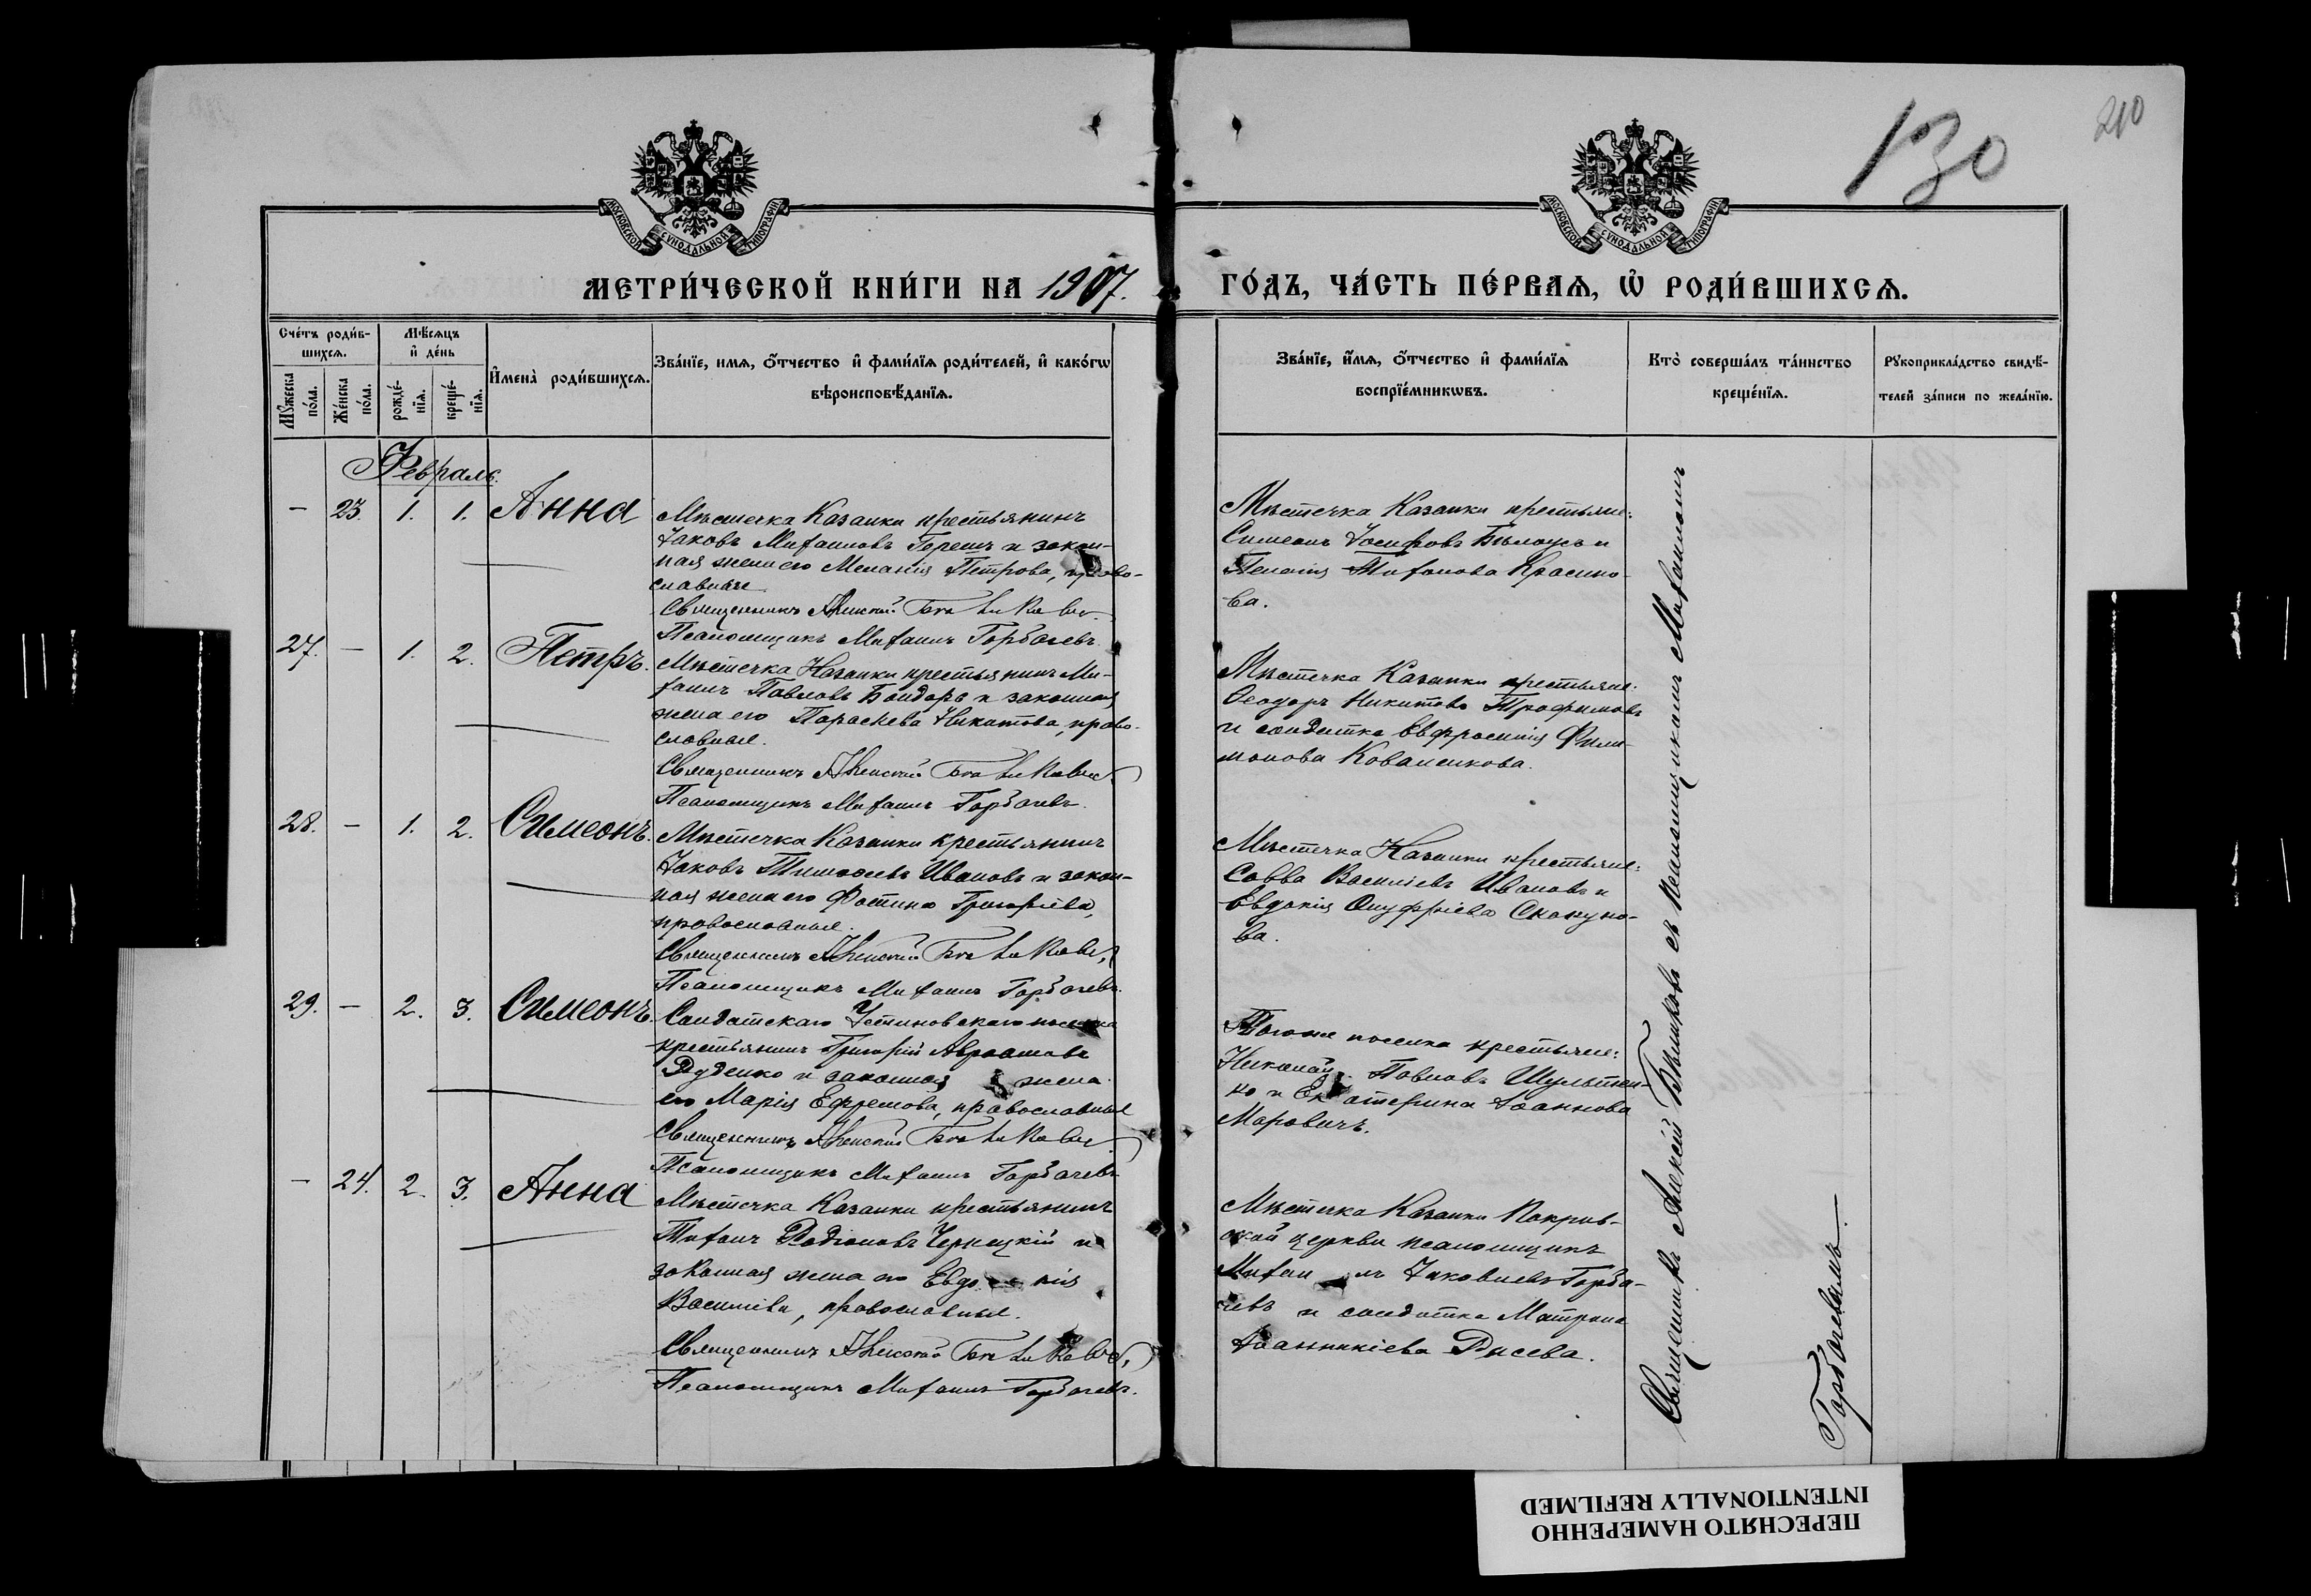 130
210
МОСКОВСКОЙ СѴНОДАЛЬНОЙ ТИПОГРАФІИ
МОСКОВСКОЙ СѴНОДАЛЬНОЙ ТИПОГРАФІИ
МЕТРИ́ЧЕСКОЙ КНИ́ГИ НА 1907.
ГО́ДЪ, ЧА́СТЬ ПЕ́РВАѦ, Ѡ҆ РОДИ́ВШИХСѦ.
Сче́тъ роди́в-
шихсѧ.
Мѣ́сѧцъ
и҆ де́нь
Мꙋ́жеска
по́ла.
Же́нска
по́ла.
рожде́-
нїѧ.
креще́-
нїѧ.
И҆мена̀ роди́вшихсѧ.
Зва́нїе, имѧ, ѻ҆́тчество и҆ фами́лїѧ роди́телей, и҆ како́гѡ
вѣроисповѣ́данїѧ.
Зва́нїе, и҆́мѧ, ѻ҆́тчество и҆ фами́лїѧ
воспрїе́мникѡвъ.
Кто̀ соверша́лъ та́инство
креще́нїѧ.
Рꙋкоприкла́дство свидѣ́-
телей за́писи по жела́нїю.
Февраль.
— 23. 1. 1. Анна
Мѣстечка Казанки крестьянинъ
Іаковъ Михаиловъ Горешъ и закон-
ная жена его Меланія Петрова, право-
славные
Священникъ Алексій
Псаломщикъ Михаилъ Горбачевъ.
Мѣстечка Казанки крестьяне:
Симеонъ Іосифовъ Бѣлоусъ и
Пелагія
ва.
27. — 1. 2. Петръ.
Мѣстечка Казанки крестьянинъ Ми-
хаилъ Павловъ Бондарь и законная
жена его Параскева Никитова, право-
славные.
Священникъ Алексій
Псаломщикъ Михаилъ Горбачевъ.
Мѣстечка Казанки крестьяне:
Ѳеодоръ Никитовъ Трофимовъ
и солдатка Евфросинія Фили-
монова Коваленкова.
28. — 1. 2. Симеонъ.
Мѣстечка Казанки крестьянинъ
Іаковъ Тимоѳеевъ Ивановъ и закон-
ная жена его Фотина Григоріева,
православные.
Священникъ Алексій
Псаломщикъ Михаилъ Горбачевъ.
Мѣстечка Казанки крестьяне:
Савва Василіевъ Ивановъ и
Евдокія Онуфріева Скакуно-
ва.
29. — 2. 3. Симеонъ.
Солдатскаго Устиновскаго поселка
крестьянинъ Григорій Авраамовъ
Руденко и законная жена
его Марія Ефремова, православные
Священникъ Алексій
Псаломщикъ Михаилъ Горбачевъ
Тогоже поселка крестьяне:
Николай Павловъ Шульжен-
ко и Екатерина Іоаннова
Маровичъ.
— 24. 2. 3. Анна
Мѣстечка Казанки крестьянинъ
Тихонъ Родіоновъ Чернецкій и
законная жена его Евдокія
Василіева, православные.
Священникъ Алексій
Псаломщикъ Михаилъ Горбачевъ.
Мѣстечка Казанки Покров-
ской церкви псаломщикъ
Михаилъ Іаковлевъ Горба-
чевъ и солдатка Матрона
Іоанникіева Рысева.
Священникъ Алексій съ псаломщикомъ Михаиломъ
Горбачевымъ.
ПЕРЕСНЯТО НАМЕРЕННО
INTENTIONALLY REFILMED